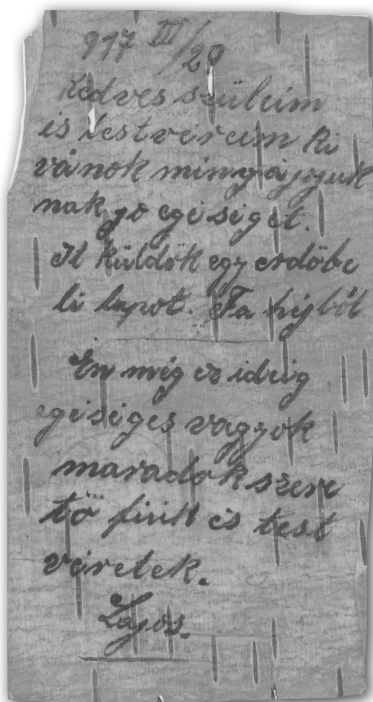 917 III/28
Kedves szüleim
és testvereim ki
vánok minyájyuk
nak jo egiséget.
It küldök egy erdőbe
li lapot. Fa héjból
Én míg ez ideig
egiséges vagyok
maradok szere
tő fiúk és test
véretek.
Lajos.